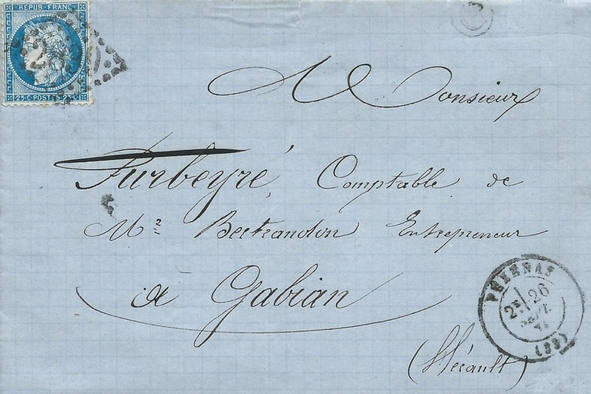 REPUB. FRANC.
25 C. POSTES 25 C.
A Monsieur
Furbeyré, Comptable de
Mr Bertrandon Entrepreneur
à Gabian
(Hérault)
PEZENAS
2E 26
SEPT.
(33)